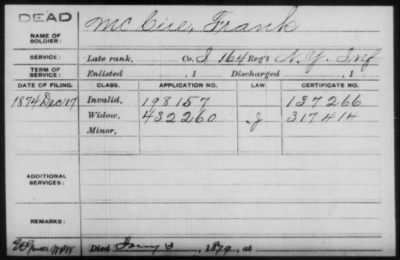 DEAD
NAME OF SOLDIER: Mc Cue, Frank
SERVICE: Late rank, Co. I 164 Reg't N.Y. Inf
TERM OF SERVICE: Enlisted , 1 Discharged , 1
DATE OF FILING. CLASS. APPLICATION NO. LAW. CERTIFICATE NO.
1874 Dec 17 Invalid, 198157 137266
Widow, 432260 J 317414
Minor,
ADDITIONAL SERVICES:
REMARKS:
Died 1879, at